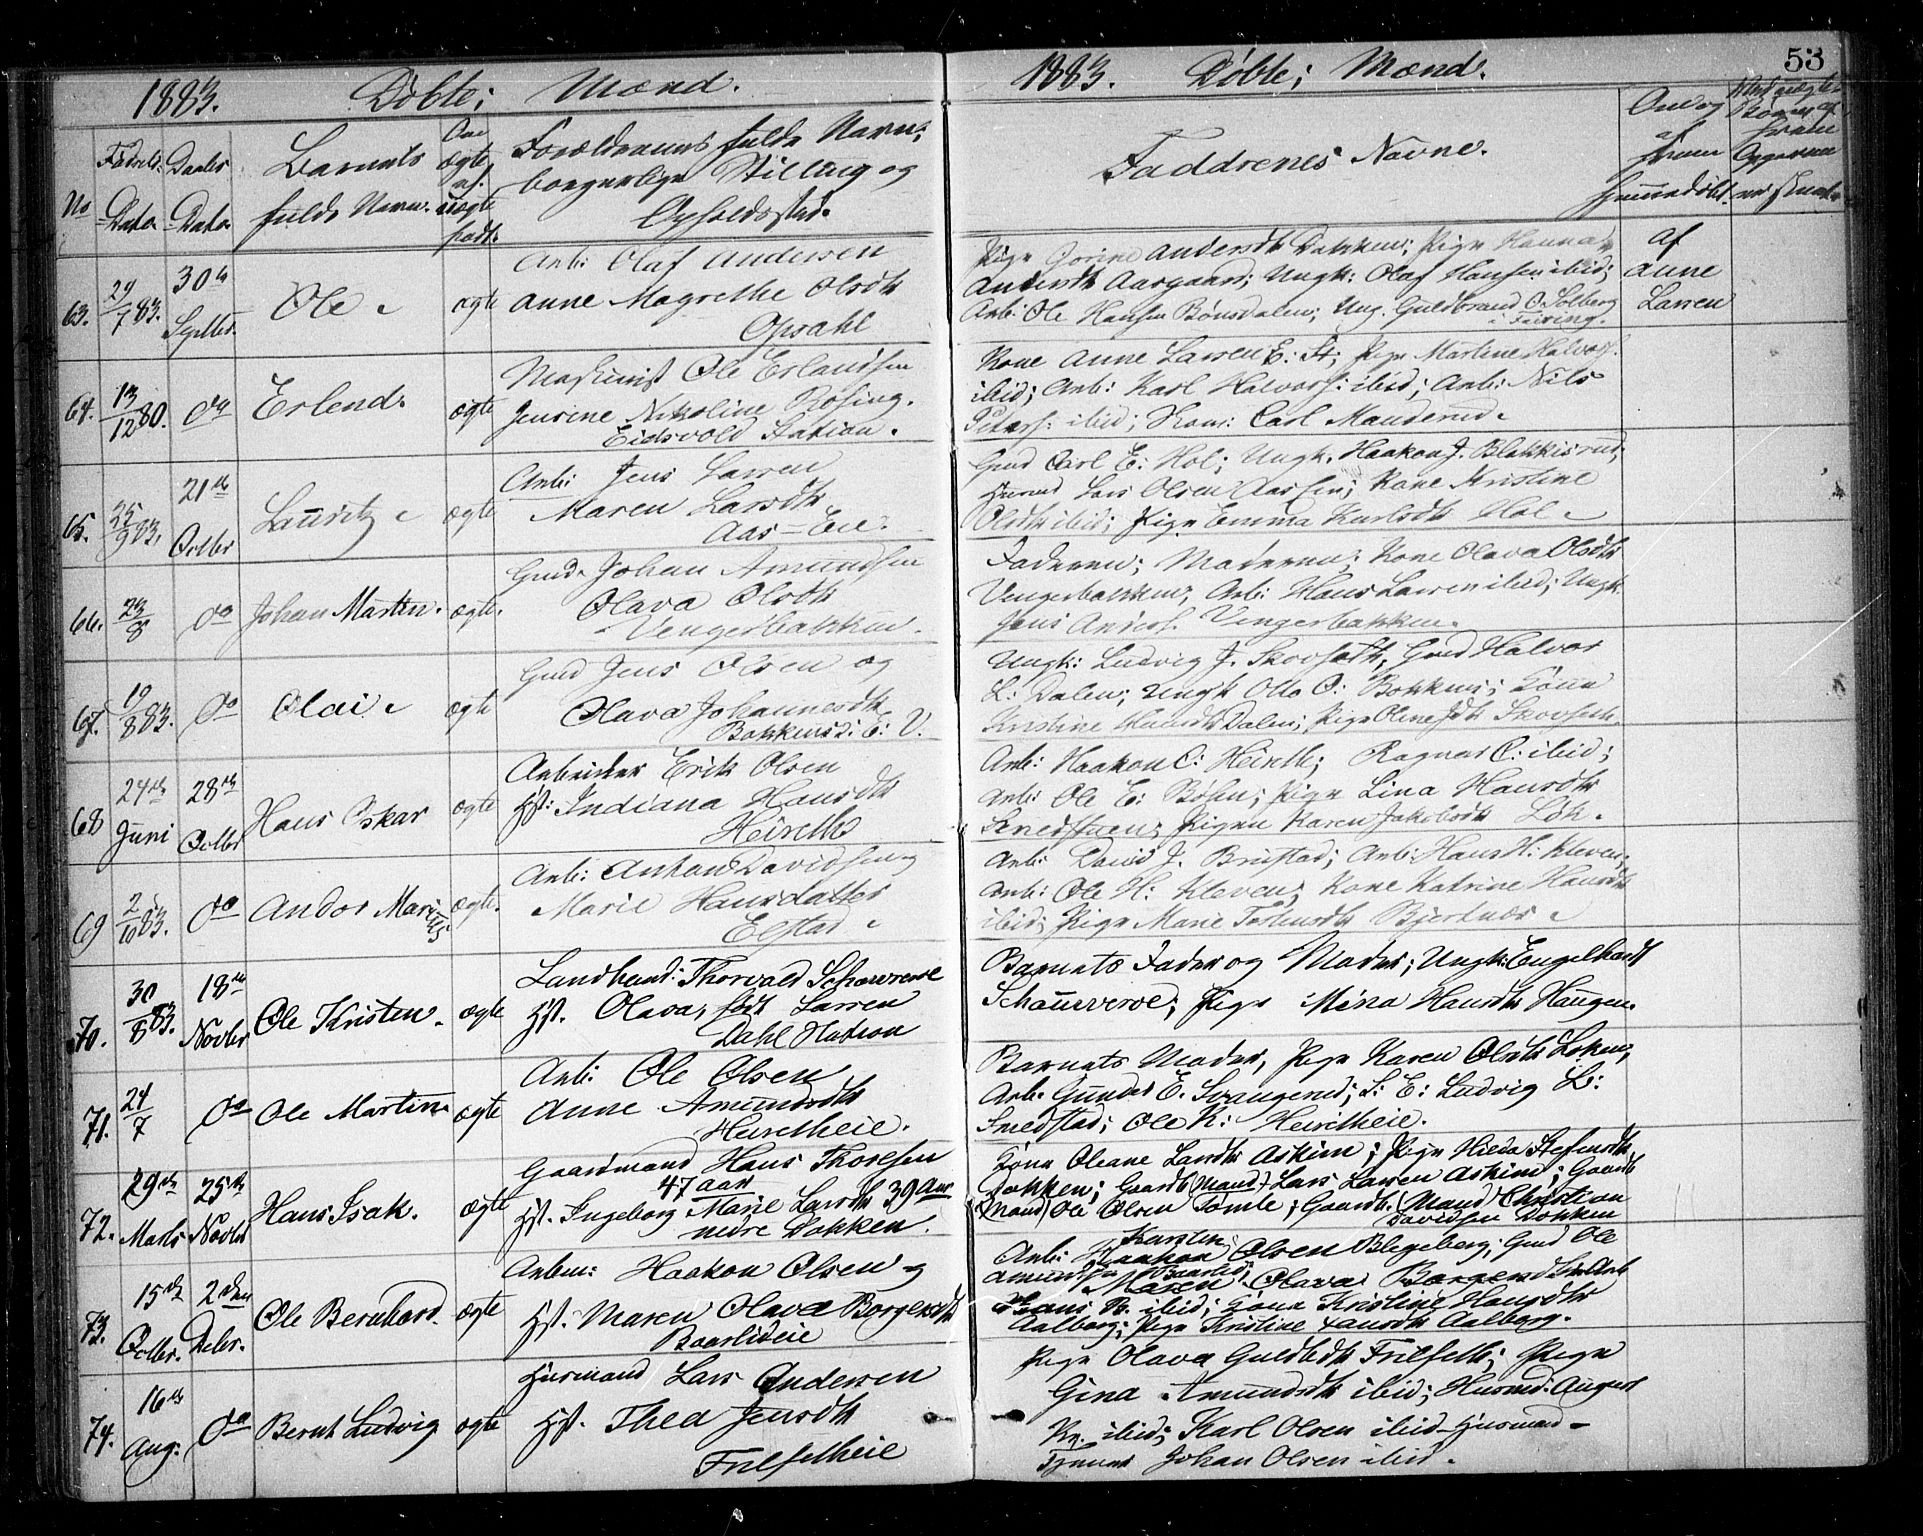 1883. Døbte; Mænd.
No
Fødsels-Dato.
Daabs Dato.
Barnets fulde Navn.
Om ægte el. uægte født.
Forældrenes fulde Navn,
borgerlige Stilling og
Opholdssted.
63. 29/7 83. 30te Septbr. Ole. ægte
Arb: Olaf Andersen
Anne Magrethe Olsdtr
Opsahl
64. 13/12 80. do Erlend. ægte
Maskinist Ole Erlandsen
Jensine Nikoline Rosing.
Eidsvold Station.
65. 25/9 83. 21de Octbr Lauritz. ægte
Arb: Jens Larsen
Maren Larsdtr
Aas-Eie.
66. 23/8 do Johan Martin. ægte.
Gmd. Johan Amundsen
Olava Olsdtr
Vengerbakken.
67. 19/8 83. do Olai. ægte
Gmd Jens Olsen og
Olava Johannesdtr
Bakkens: E: V.
68 24de Juni 28de Octbr Hans Oskar ægte
Arbeider Erik Olsen
Hst: Indiana Hansdtr
Heireth
69 2/10 83. do Andor Marius ægte.
Arb: Anton Davidsen og
Marie Hansdatter
Elstad.
70. 30/8 83. 18de Novbr Ole Kristen. ægte
Landhand: Thorvald Schouverve
Hst. Olava, født Larsen
Dahl Station
71. 24/7 do Ole Martin ægte
Arb: Ole Olsen
Anne Amundsdtr
Heiretheie.
72. 29de Marts 25de Novbr Hans Isak. ægte
Gaardmand Hans Thorsen
47 aar
Hst. Ingeborg Marie Larsdtr 39 Aar
nedre Dokken.
73. 15de Octbr. 2den Debr. Ole Bernhard. ægte
Arbm: Haakon Olsen og
Hst. Maren Olava Borgersdtr
Baarlideie
74. 16de Aug: do Bernt Ludvig ægte
Husmand Lars Andersen
Hst. Thea Jensdtr
Frilsetheie
1883. Døbte; Mænd. 53
Faddrenes Navne.
Om og af hvem hjemmedøbt.
Pige Jorine Andersdtr Dokken; Pige Hanna
Andersdtr Aasgaard; Ungk: Olaf Hansen ibid;
Arb: Ole Hansen Bønsdalen; Ung. Guldbrand O. Solberg
i Feiring.
af
Anne
Larsen
Kone Anne Larsen E: St; Pige Martine Halvors.
ibid; Arb: Karl Halvors: ibid; Arb: Nils
Peters: ibid; Kom: Carl Manderud.
Gmd Carl E: Hol; Ungk. Haakon J. Blakkisrud;
Husmd Lars Olsen Aas Eie; Kone Kristine
Olsdtr ibid; Pige Emma Karlsdtr Hol.
Faderen; Moderen; Kone Olava Olsdtr
Vengerbakken; Arb: Hans Larsen ibid; Ungk.
Jens Anders. Vengerbakken.
Ungk: Ludvig J. Skovseth; Gmd Halvor
L: Dalen; Ungk Otto O: Bakkens; Kone
Kristine Hansdtr Dalen; Pige Oline Jdtr Skovseth.
Arb: Haakon O: Heireth; Ragnar O: ibid;
Arb: Ole E: Bøhn; Pige Lina Hansdtr
Smedstuen; Pigen Karen Jakobsdtr Løk.
Arb: David J. Brustad; Arb: Hans H: Kleven;
Arb: Ole H: Kleven; Kone Katrine Hansdtr
ibid; Pige Marie Torstensdtr Bjertnæs.
Barnets Fader og Moder; Ungk: Engelhardt
Schouverve; Pige Mina Hansdtr Haugen.
Barnets Moder, Pige Karen Olsdtr Løken,
Arb. Gunder E. Svangerud; S: E: Ludvig L:
Smedstad; Ole K: Heiretheie.
Kone Oleane Larsdtr Askim; Pige Hilda Stefensdtr
Dokken; Gaardb (Mand) Lars Larsen Askim; Gaardb
(Mand) Ole Olsen Tømte; Gaardb. (Mand) Christian
Davidsen Dokken
Arb: Karsten Olsen Blegeberg; Gmd Ole
Amundsen Baarlid;
Hans B. ibid; Kone Kristine Hansdtr
Aalborg; Pige Kristine Hansdtr Aalborg.
Pige Olava Guldbdtr Frilseth; Pige
Gina Amundsdtr ibid; Husmd: August
Kr. ibid; Karl Olsen ibid Husmand
Tjener Johan Olsen ibid.